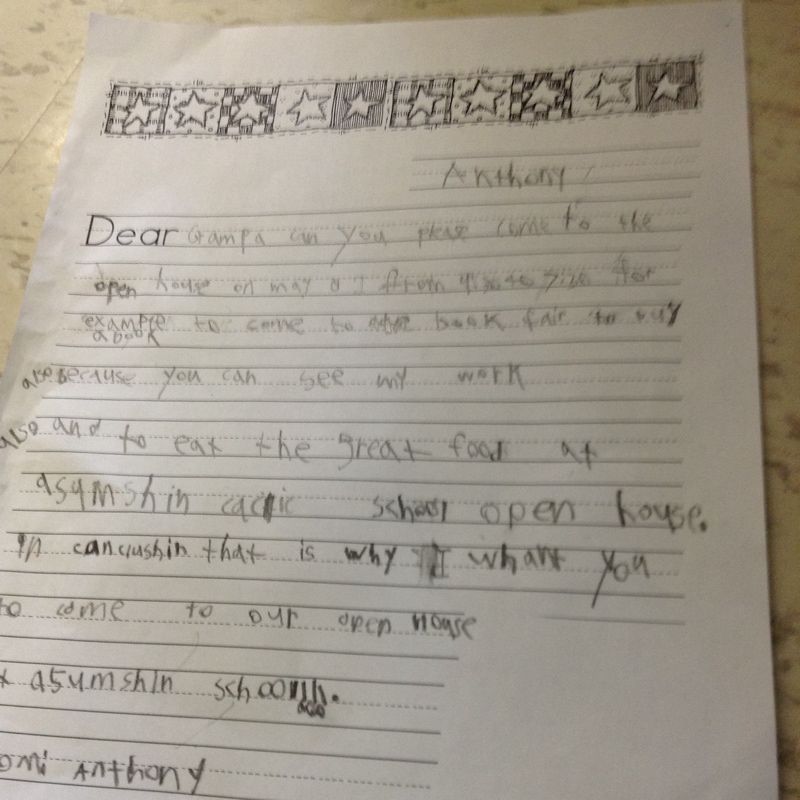 Anthony
Dear Grampa can you pleae come to the
open house on may from for
example to come to the book fair to buy
a book
because you can see my work
also and to eat the great food at
asymshin school open house.
In cancushin that is why I whant you
to come to our open house
asumshin school.
Anthony